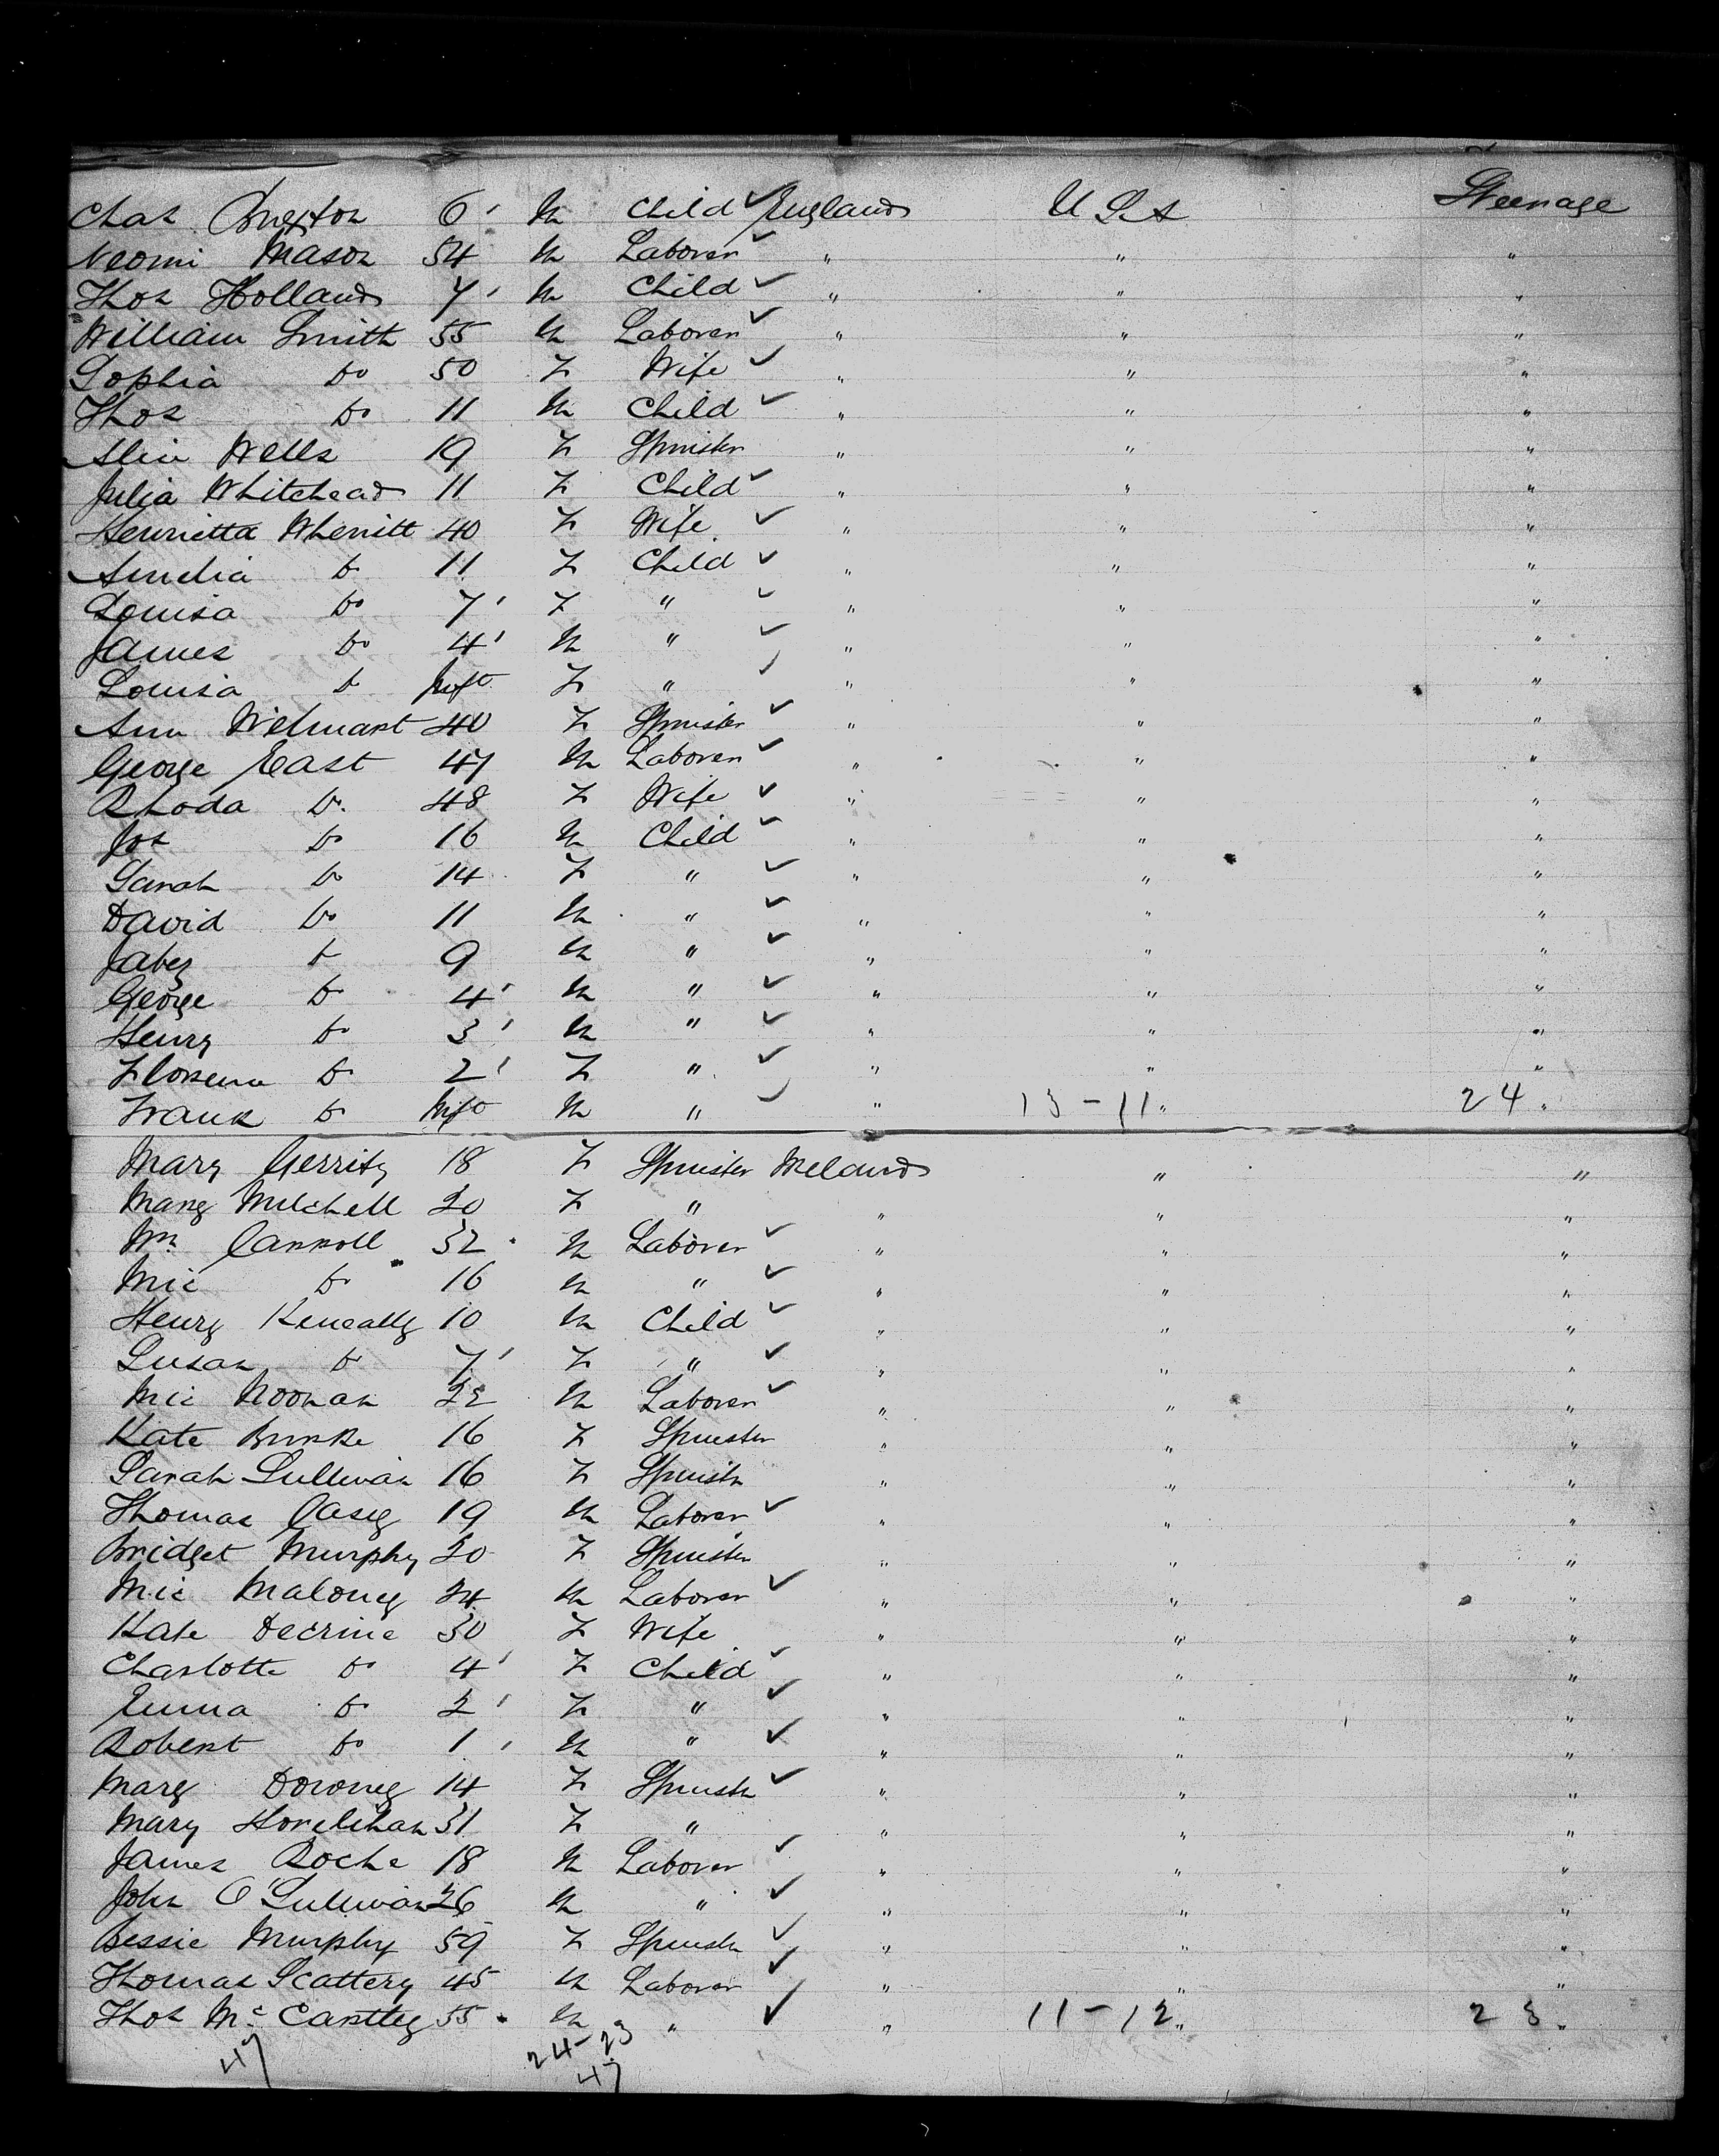 Chas Buxton 6 ' M Child ✓ England U S A Steerage
Neomi Mason 54 M Laborer ✓ " " "
Thos Holland 7 ' M Child ✓ " " "
William Smith 55 M Laborer ✓ " " "
Sophia Do 50 F Wife ✓ " " "
Thos Do 11 M Child ✓ " " "
Wells 19 F Spinster " " "
Julia Whitehead 11 F Child ✓ " " "
Henrietta Wherritt 40 F Wife ✓ " " "
Amelia Do 11 F Child ✓ " " "
Louisa Do 7 ' F " ✓ " " "
James Do 4 ' M " ✓ " " "
Louisa Do Inft F " ✓ " " "
Ann Welmart 40 F Spinster ✓ " " "
George East 47 M Laborer ✓ " " "
Rhoda Do 48 F Wife ✓ " " "
Jos Do 16 M Child ✓ " " "
Sarah Do 14 F " ✓ " " "
David Do 11 M " ✓ " " "
Jabez Do 9 M " ✓ " " "
George Do 4 ' M " ✓ " " "
Henry Do 3 ' M " ✓ " " "
Do 2 ' F " ✓ " " "
Frank Do Inft M " ✓ " 13-11 " 24 "
Mary Gerrity 18 F Spinster Ireland " "
Mary Mitchell 20 F " " " "
Wm Carroll 32 M Laborer ✓ " " "
Mic Do 16 M " ✓ " " "
Henry Keneally 10 M Child ✓ " " "
Susan Do 7 ' F " ✓ " " "
Mic Noonan 22 M Laborer ✓ " " "
Kate Burke 16 F Spinster " " "
Sarah Sullivan 16 F Spinster " " "
Thomas Casey 19 M Laborer ✓ " " "
Bridget Murphy 20 F Spinster " " "
Mic Maloney 24 M Laborer ✓ " " "
Kate Decrine 30 F Wife " " "
Charlotte Do 4 ' F Child ✓ " " "
Emma Do 2 ' F " ✓ " " "
Robert Do 1 ' M " ✓ " " "
Mary Downey 14 F Spinster ✓ " " "
Mary 31 F " " " "
James Roche 18 M Laborer ✓ " " "
John O'Sullivan 26 M " ✓ " " "
Bessie Murphy 59 F Spinster ✓ " " "
Thomas Scattery 45 M Laborer ✓ " " "
Thos McCarthy 55 M " ✓ " 11-12 " 23 "
47 24-23
47